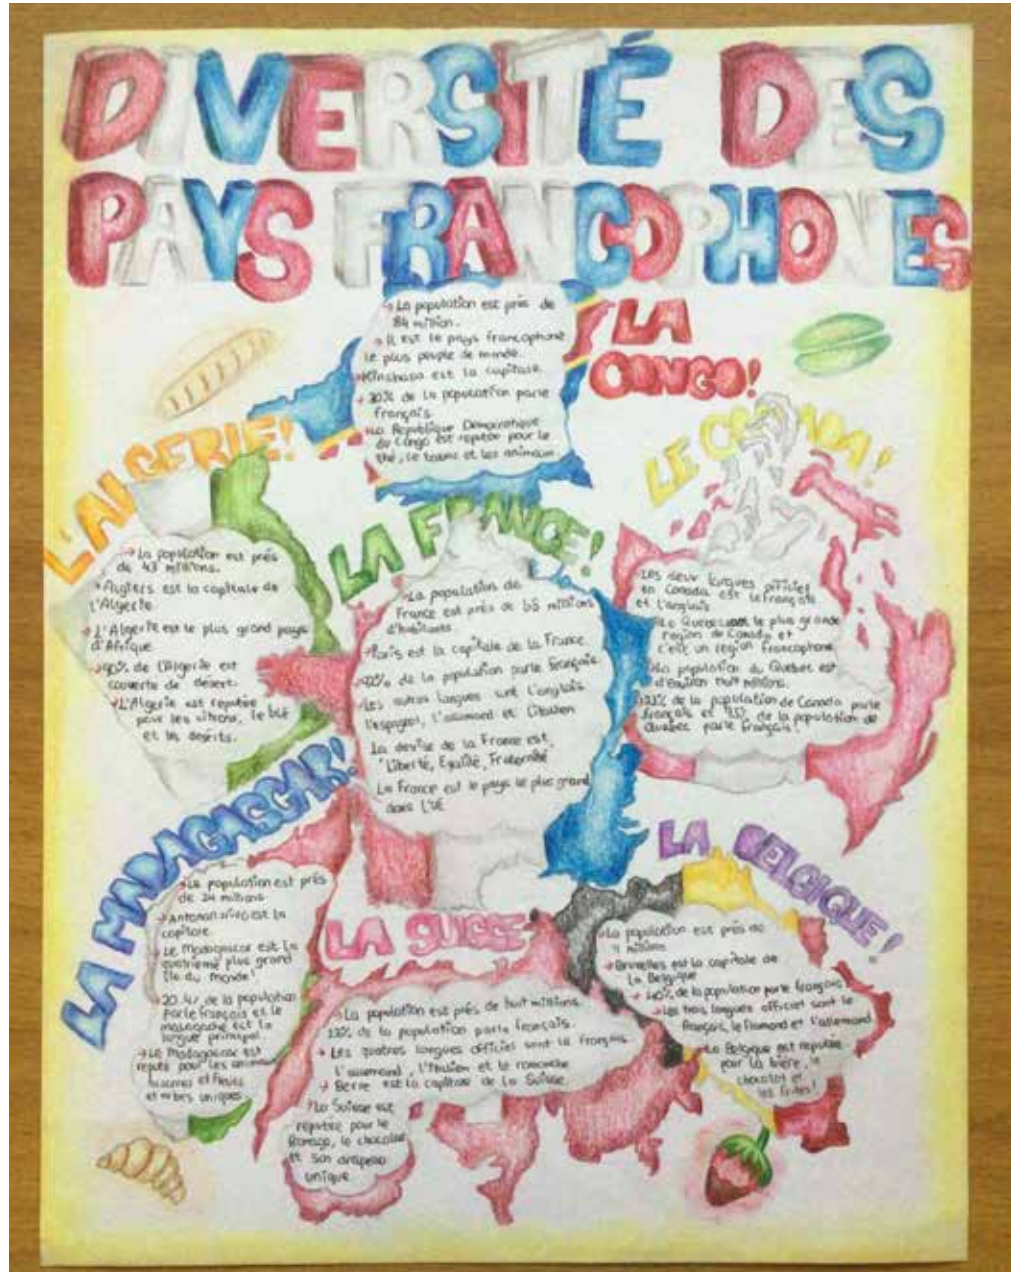 DIVERSITÉ DES
PAYS FRANCOPHONES
LA
CONGO!
→ La population est près de
84 million.
→ Il est le pays francophone
le plus peuple de monde.
→ Kinshasa est la capitale.
→ 30% de la population parle
français.
La République Démocratique
du Congo est reputée pour le
thé, le et les animaux
L'ALGERIE!
→ La population est près
de 43 millions.
→ Algiers est la capitale de
l'Algerie.
→ L'Algerie est le plus grand pays
d'Afrique
→ 90% de l'Algerie est
couverte de desert.
→ L'Algerie est reputée
pour les citrons, le blé
et les deserts.
LA FRANCE!
La population de
France est près de 65 millions
d'habitants.
→ Paris est la capitale de la France.
→ % de la population parle français.
Les autres langues sont l'anglais
l'espagnol, l'allemand et l'italien
La devise de la France est,
"Liberté, Egalité, Fraternité
La France est le pays le plus grand
dans L'UE
LE CANADA!
Les deux langues officiel
en Canada est le français
et l'anglais
Le Quebec le plus grande
region de Canada et
c'est un region francophone.
La population du Quebec est
d'environ huit millions.
% de la population de Canada parle
français et % de la population de
Quebec parle français!
LA MADAGASCAR!
→ La population est près
de 24 millions
→ est la
capitale.
→ Le Madagascar est la
quatrième plus grand
île du monde!
→ 20.4% de la population
parle français et le
est la
langue principal.
→ Le Madagascar est
reputé pour les
et fleurs
et uniques
LA SUISSE
→ La population est près de huit millions.
% de la population parle français.
→ Les quatres langues officiel sont le français
l'allemand, l'italien et le romanche
→ Berne est la capitale de la Suisse
→ La Suisse est
reputée pour le
fromage, le chocolat
et son drapeau
unique
LA BELGIQUE!
→ La population est près de
11 millions
→ Bruxelles est la capitale de
La Belgique
→ 40% de la population parle français
→ Les trois langues officiel sont le
français, le flamand et l'allemand
→ La Belgique est reputée
pour la bière, le
chocolat et
les frites!